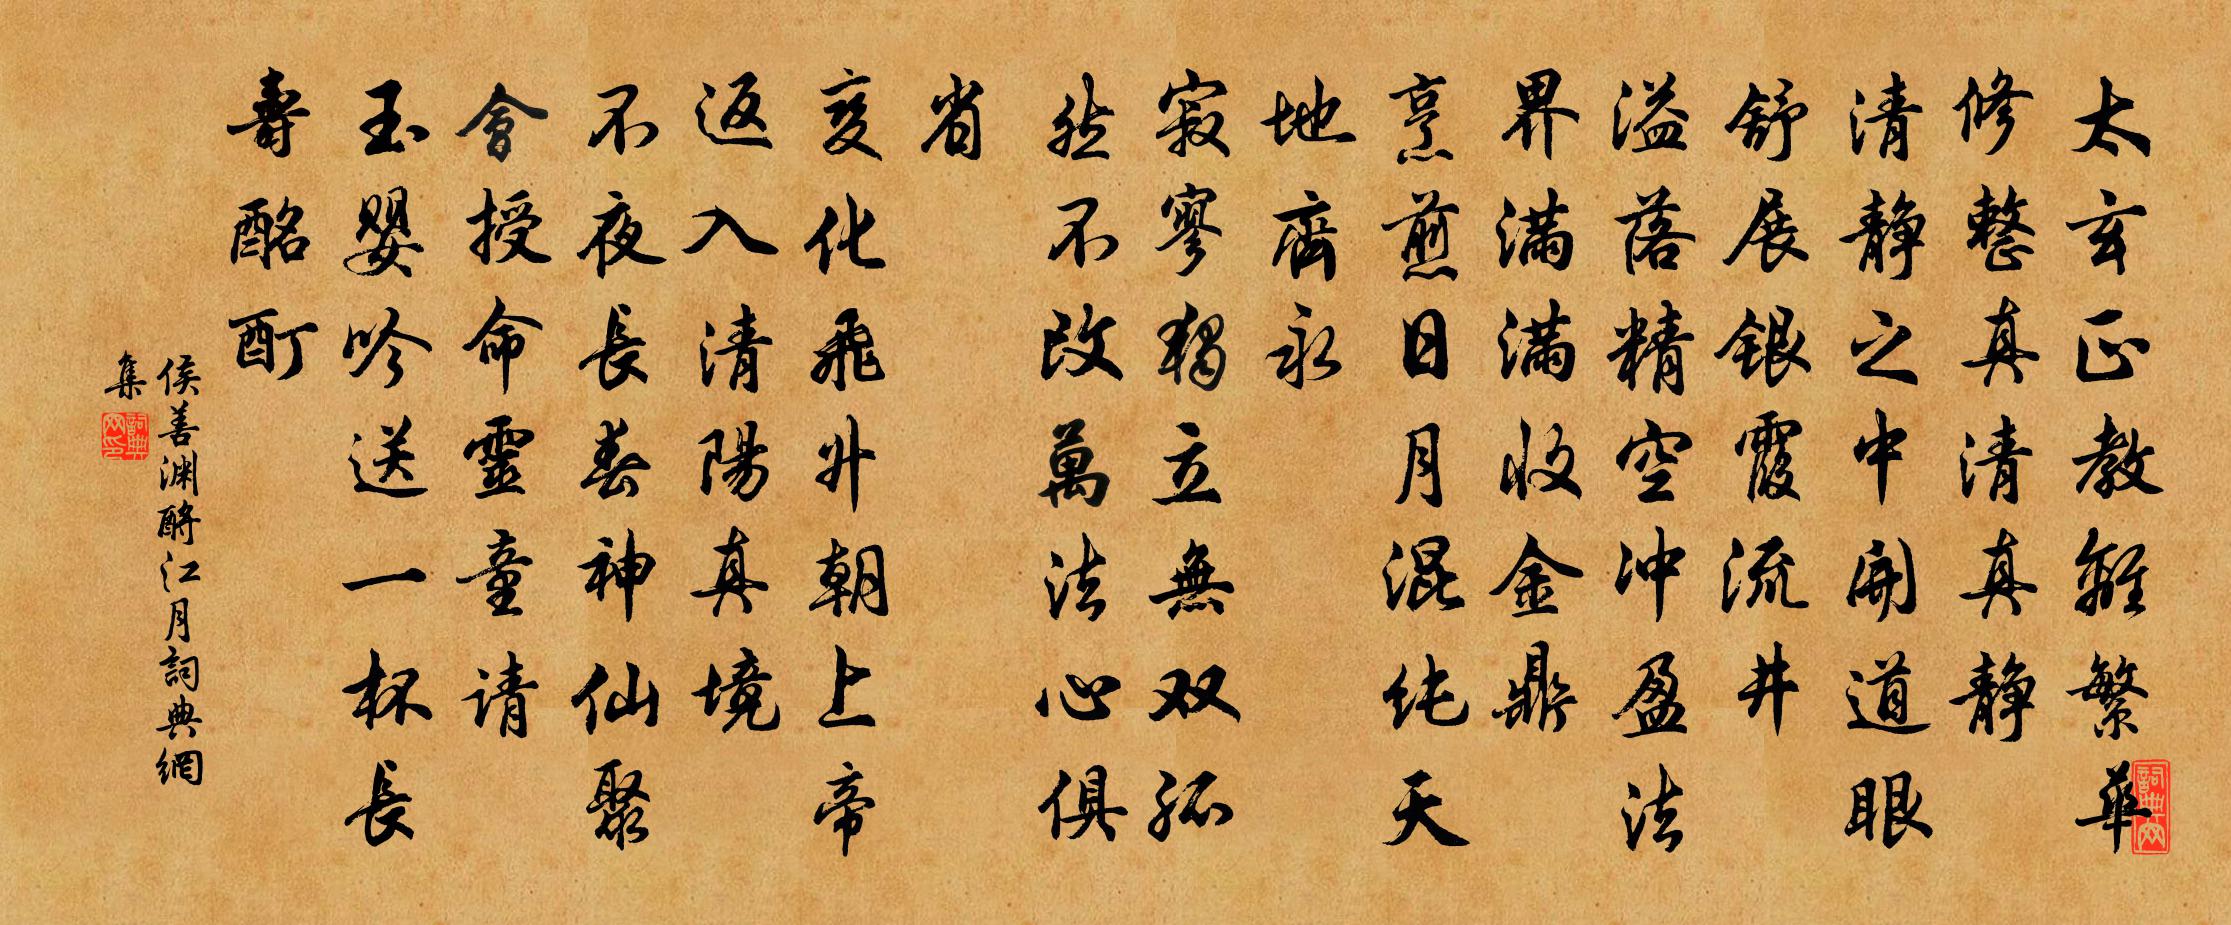 太玄正教离繁華
修整真清真静
清静之中開道眼
舒展銀霞流井
溢落精空冲盈法
界满满收金鼎
烹煎日月混纯天
地齊永
寂寥獨立無双孤
然不改萬法心俱
省
变化飛升朝上帝
返入清陽真境
不夜長春神仙聚
會授命靈童请
玉婴吟送一杯長
壽酩酊
侯善渊酹江月詞典網
集
詞典网
詞典网印